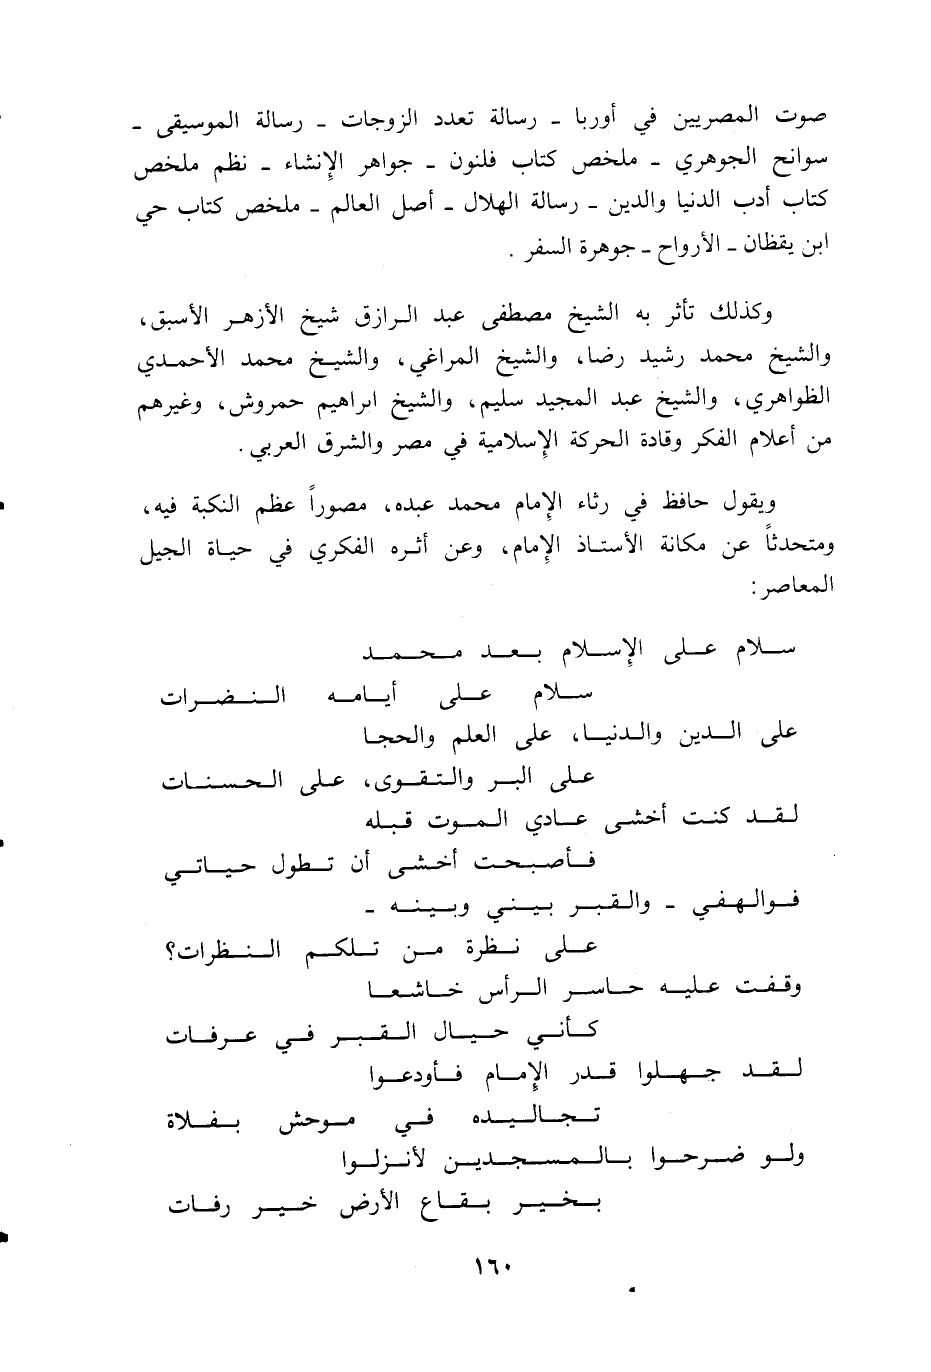 صوت المصريين في أوربا ــ رسالة تعدد الزوجات ــ رسالة الموسيقى ــ
سوانح الجوهري ــ ملخص كتاب فلنون ــ جواهر الإنشاء ــ نظم ملخص
كتاب أدب الدنيا والدين ــ رسالة الهلال ــ أصل العالم ــ ملخص كتاب حي
ابن يقظان ــ الأرواح ــ جوهرة السفر .
وكذلك تأثر به الشيخ مصطفى عبد الرازق شيخ الأزهر الأسبق،
والشيخ محمد رشيد رضا، والشيخ المراغي، والشيخ محمد الأحمدي
الظواهري، والشيخ عبد المجيد سليم، والشيخ ابراهيم حمروش، وغيرهم
من أعلام الفكر وقادة الحركة الإسلامية في مصر والشرق العربي .
ويقول حافظ في رثاء الإمام محمد عبده، مصوراً عظم النكبة فيه،
ومتحدثاً عن مكانة الأستاذ الإمام، وعن أثره الفكري في حياة الجيل
المعاصر :
سلام على الإسلام بعد محمد
سلام على أيامه النضرات
على الدين والدنيا، على العلم والحجا
على البر والتقوى، على الحسنات
لقد كنت أخشى عادي الموت قبله
فأصبحت أخشى أن تطول حياتي
فوالهفي ــ والقبر بيني وبينه ــ
على نظرة من تلكم النظرات؟
وقفت عليه حاسر الرأس خاشعا
كأني حيال القبر في عرفات
لقد جهلوا قدر الإمام فأودعوا
تجاليده في موحش بفلاة
ولو ضرحوا بالمسجدين لأنزلوا
بخير بقاع الأرض خير رفات
١٦٠